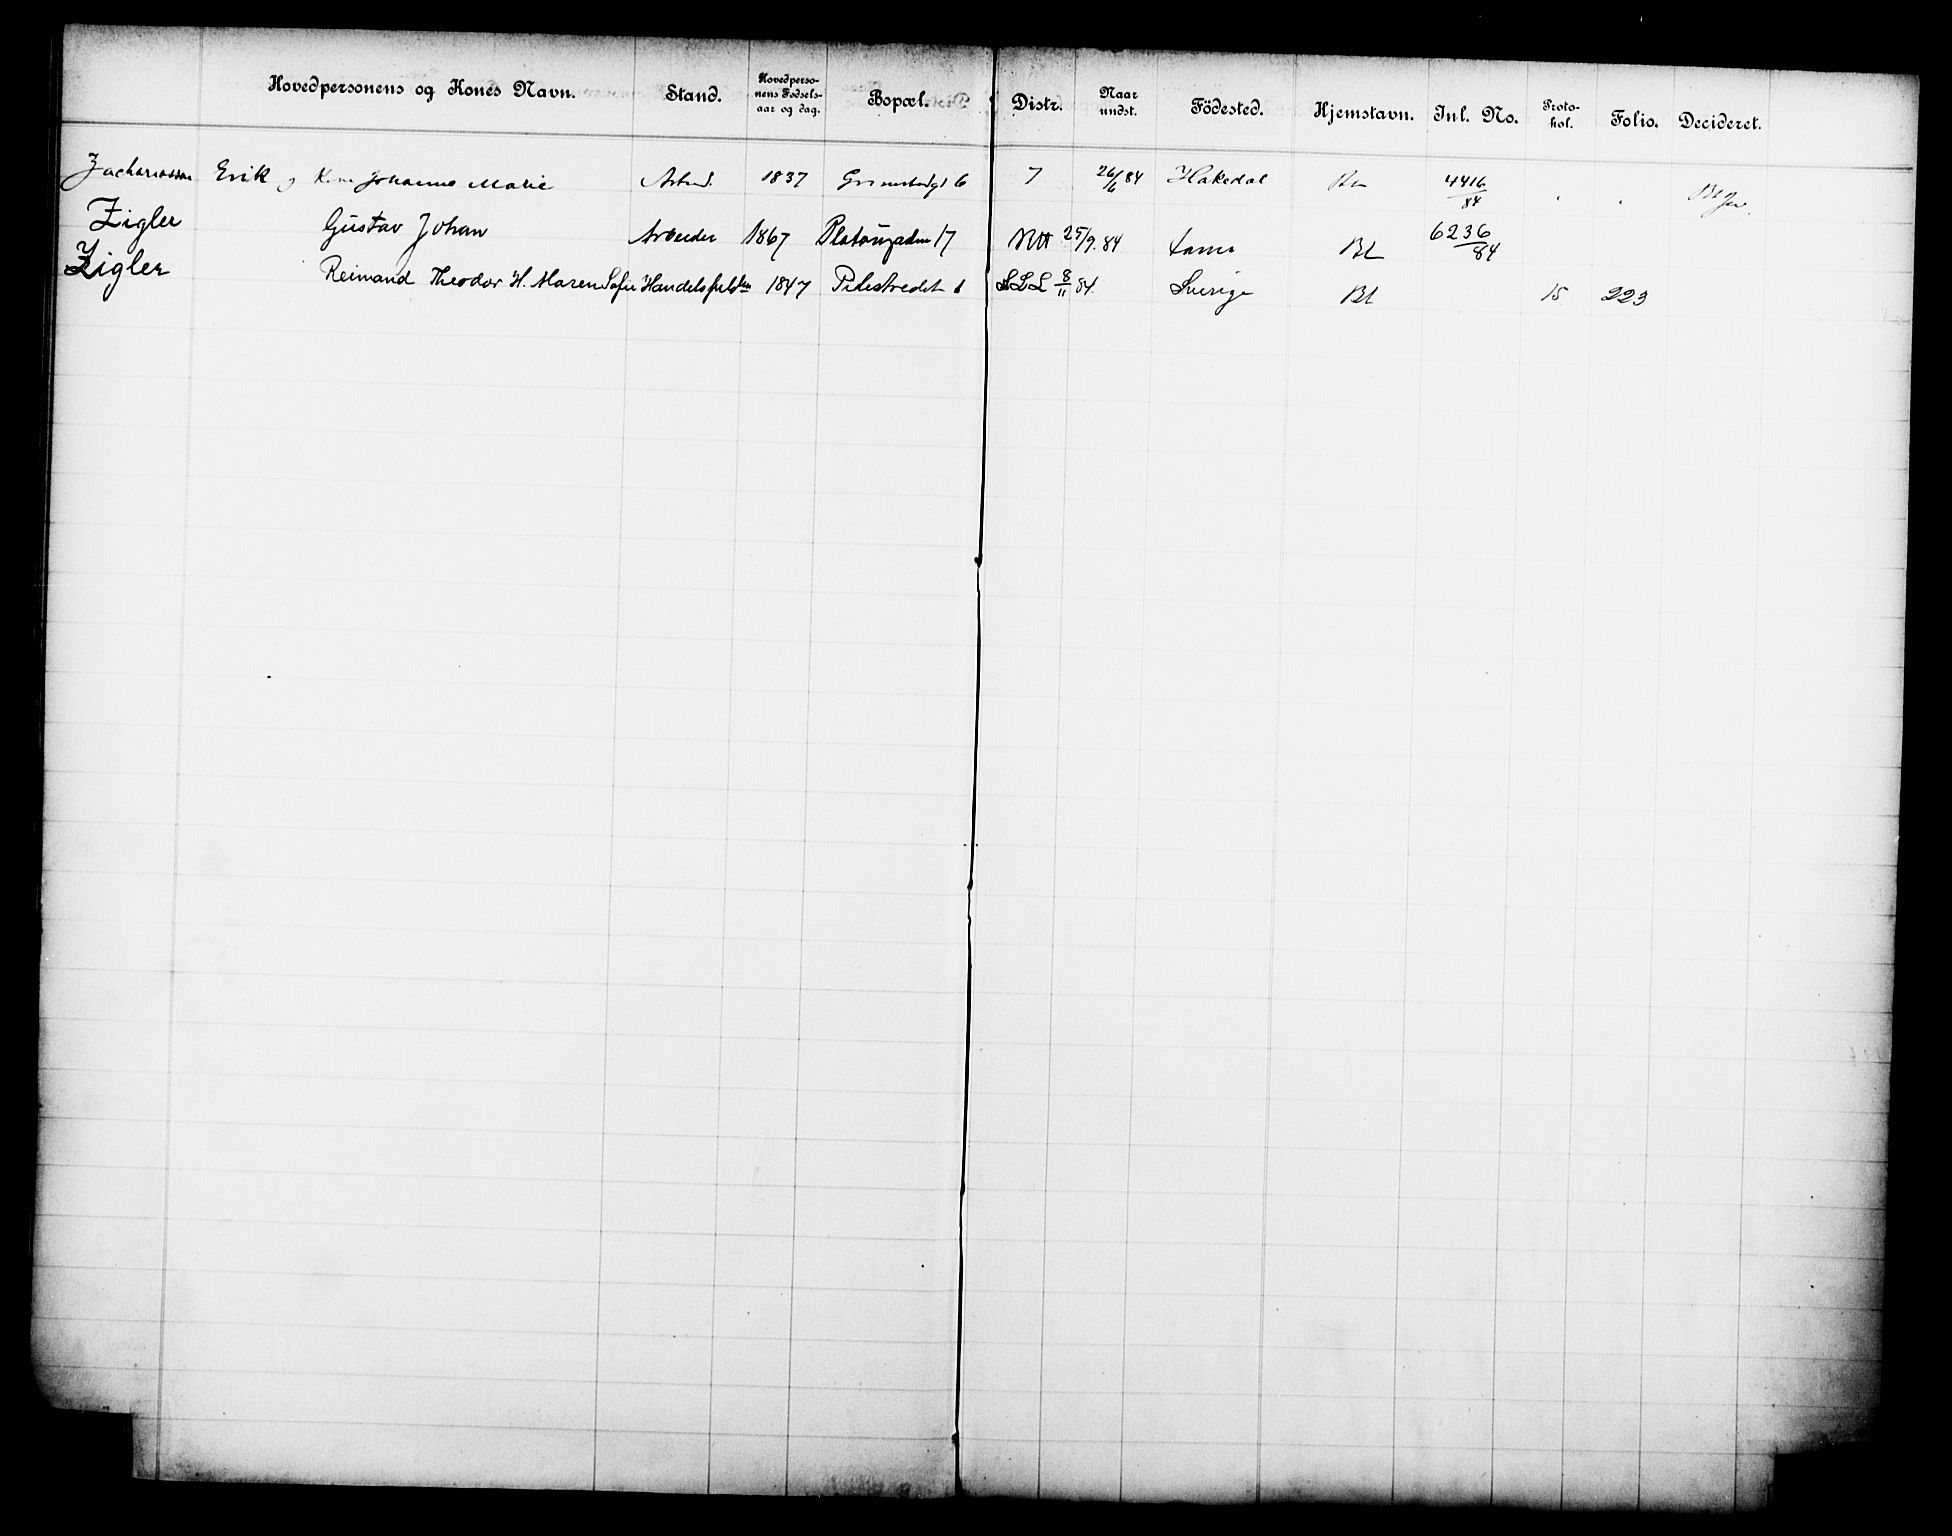 Hovedpersonens og Kones Navn. Stand. Hovedperso-nens Fødsels-aar og dag. Bopæl. Distr. Naar undst. Födested. Hjemstavn. Inl. No. Proto-kol. Folio. Decideret.
Zachariassen Erik og Kone Johanne Marie Arbeid. 1837 6 7 26/6 84 Hakedal 4416/84
Zigler Gustav Johan Arbeider 1867 Platousgaden 17 25/9. 84 BL 6236/84
Zigler Reinand Theodor H. Maren Sofie 1847 Pilestredet 1 8/11 84. Sverige BL 15 223